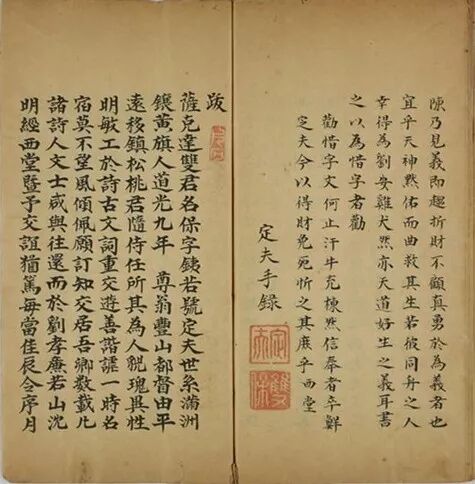 陳乃見義即趨折財不顧真勇於為義者也
宜乎天神黙佑而曲救其生若彼同舟之人
幸得為劉安雞犬然亦天道好生之義耳書
之以為惜字者勸
勸惜字文何止汗牛充棟然信奉者卒鮮
定夫今以得財免死忻之其庶乎西堂
定夫手錄
定夫
雙保
跋
薩克達雙君名保字銕若號定夫世系滿洲
鑲黃旗人道光九年 尊翁豐山都督由平
遠移鎮松桃君隨侍任所其為人貌瑰異性
明敏工於詩古文詞重交遊善諧謔一時名
宿莫不望風傾佩願訂知交居吾鄉數載凡
諸詩人文士咸與往還而於劉孝廉若山沈
明經西堂暨予交誼猶篤每當佳辰令序月